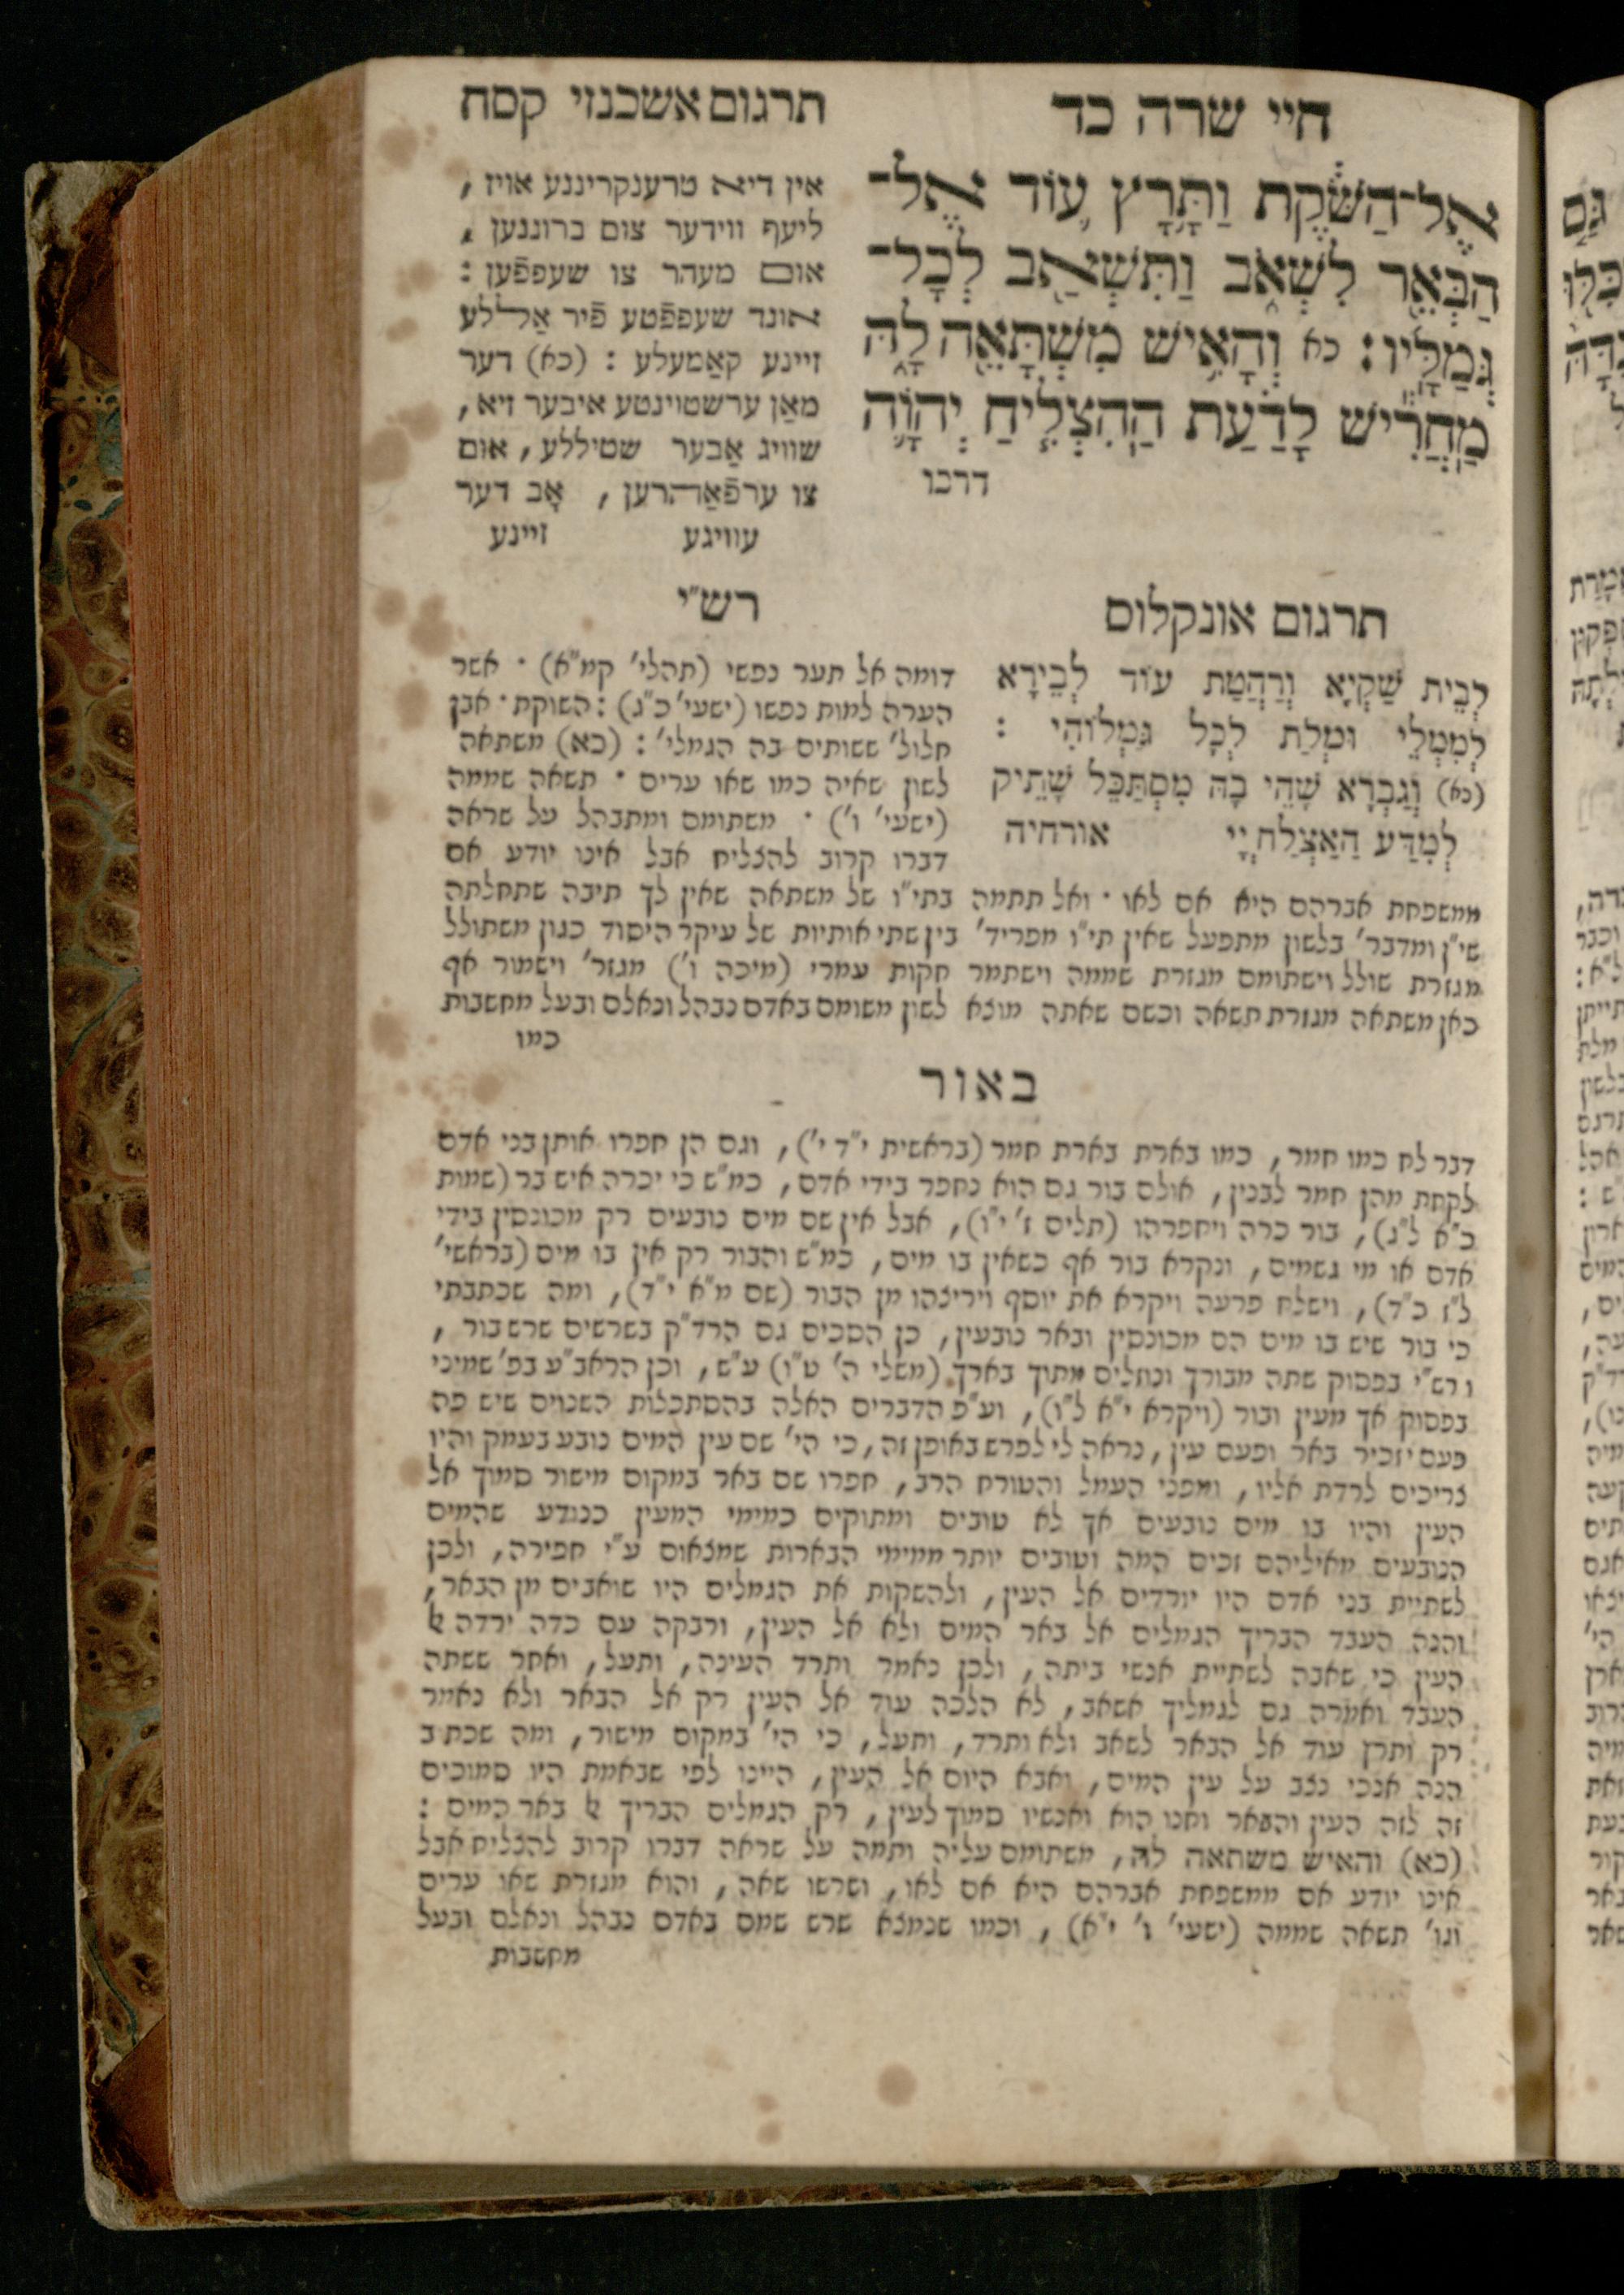 חיי שרה כד
תרגום אשכנזי קסח
אֶל־הַשֹּׁקֶת וַתָּרָץ עוֹד אֶל־
הַבְּאֵר לִשְׁאֹב וַתִּשְׁאַב לְכָל־
גְּמַלָּיו: כא וְהָאִישׁ מִשְׁתָּאֵה לָהּ
מַחֲרִישׁ לָדַעַת הַהִצְלִיחַ יְהוָֹה
דרכו
אין דיא טרענקריננע אויז,
ליעף ווידער צום ברוננען,
אום מעהר צו שעפפֿען:
אונד שעפפֿטע פֿיר אַללע
זיינע קאַמעלע: (כא) דער
מאַן ערשטוינטע איבער זיא,
שוויג אַבער שטיללע, אום
צו ערפֿאַהרען, אָב דער
עוויגע זיינע
תרגום אונקלוס
לְבֵית שַׁקְיָא וְרָהֲטַת עוֹד לְבֵירָא
לְמִמְלֵי וּמְלַת לְכָל גַּמְלוֹהִי:
(כא) וְגַבְרָא שָׁהֵי בָהּ מִסְתַּכֵּל שָׁתֵיק
לְמִדַּע הַאַצְלַח יְיָ אורחיה
רש"י
דומה אל תער נפשי (תהלי' קמ"א) · אשר
הערה למות נפשו (ישעי' כ"ג): השוקת · אבן
חלול' ששותים בה הגמלי': (כא) משתאה
לשון שאיה כמו שאו ערים · תשאה שממה
(ישעי' ו') · משתומם ומתבהל על שראה
דברו קרוב להצליח אבל אינו יודע אם
ממשפחת אברהם היא אם לאו · ואל תתמה בתי"ו של משתאה שאין לך תיבה שתחלתה
שי"ן ומדבר' בלשון מתפעל שאין תי"ו מפריד' בין שתי אותיות של עיקר היסוד כגון משתולל
מגזרת שולל וישתומם מגזרת שממה וישתמר חקות עמרי (מיכה ו') מגזר' וישמור אף
כאן משתאה מגזרת תשאה וכשם שאתה מוצא לשון משומם באדם נבהל ונאלם ובעל מחשבות
כמו
באור
דבר לח כמו חמר, כמו בארת בארת חמר (בראשית י"ד י'), וגם הן חפרו אותן בני אדם
לקחת מהן חמר לבנין, אולם בור גם הוא נחפר בידי אדם, כמ"ש כי יכרה איש בר (שמות
כ"א ל"ג), בור כרה ויחפרהו (תלים ז' י"ו), אבל אין שם מים נובעים רק מכונסין בידי
אדם או מי גשמים, ונקרא בור אף כשאין בו מים, כמ"ש והבור רק אין בו מים (בראשי'
ל"ז כ"ד), וישלח פרעה ויקרא את יוסף ויריצהו מן הבור (שם מ"א י"ד), ומה שכתבתי
כי בור שיש בו מים הם מכונסין ובאר נובעין, כן הסכים גם הרד"ק בשרשים שרש בור,
ורש"י בפסוק שתה מבורך ונוזלים מתוך בארך (משלי ה' ט"ו) ע"ש, וכן הראב"ע בפ' שמיני
בפסוק אך מעין ובור (ויקרא י"א ל"ו), וע"פ הדברים האלה בהסתכלות השנוים שיש פה
פעם יזכיר באר ופעם עין, נראה לי לפרש באופן זה, כי הי' שם עין המים נובע בעמק והיו
צריכים לרדת אליו, ומפני העמל והטורח הרב, חפרו שם באר במקום מישור סמוך אל
העין והיו בו מים נובעים אך לא טובים ומתוקים כמימי המעין כנודע שהמים
הנובעים מאיליהם זכים המה וטובים יותר ממימי הבארות שמצאום ע"י חפירה, ולכן
לשתיית בני אדם היו יורדים אל העין, ולהשקות את הגמלים היו שואבים מן הבאר,
והנה העבד הבריך הגמלים אל באר המים ולא אל העין, ורבקה עם כדה ירדה אל
העין כי שאבה לשתיית אנשי ביתה, ולכן נאמר ותרד העינה, ותעל, ואחר ששתה
העבד ואמרה גם לגמליך אשאב, לא הלכה עוד אל העין רק אל הבאר ולא נאמר
רק ותרץ עוד אל הבאר לשאב ולא ותרד, ותעל, כי הי' במקום מישור, ומה שכתב
הנה אנכי נצב על עין המים, ואבא היום אל העין, היינו לפי שבאמת היו סמוכים
זה לזה העין והבאר וחנו הוא ואנשיו סמוך לעין, רק הגמלים הבריך אל באר המים:
(כא) והאיש משתאה לה, משתומם עליה ותמה על שראה דברו קרוב להצליח אבל
אינו יודע אם ממשפחת אברהם היא אם לאו, ושרשו שאה, והוא מגזרת שאו ערים
וגו' תשאה שממה (ישעי' ו' י"א), וכמו שנמצא שרש שמם באדם נבהל ונאלם ובעל
מחשבות